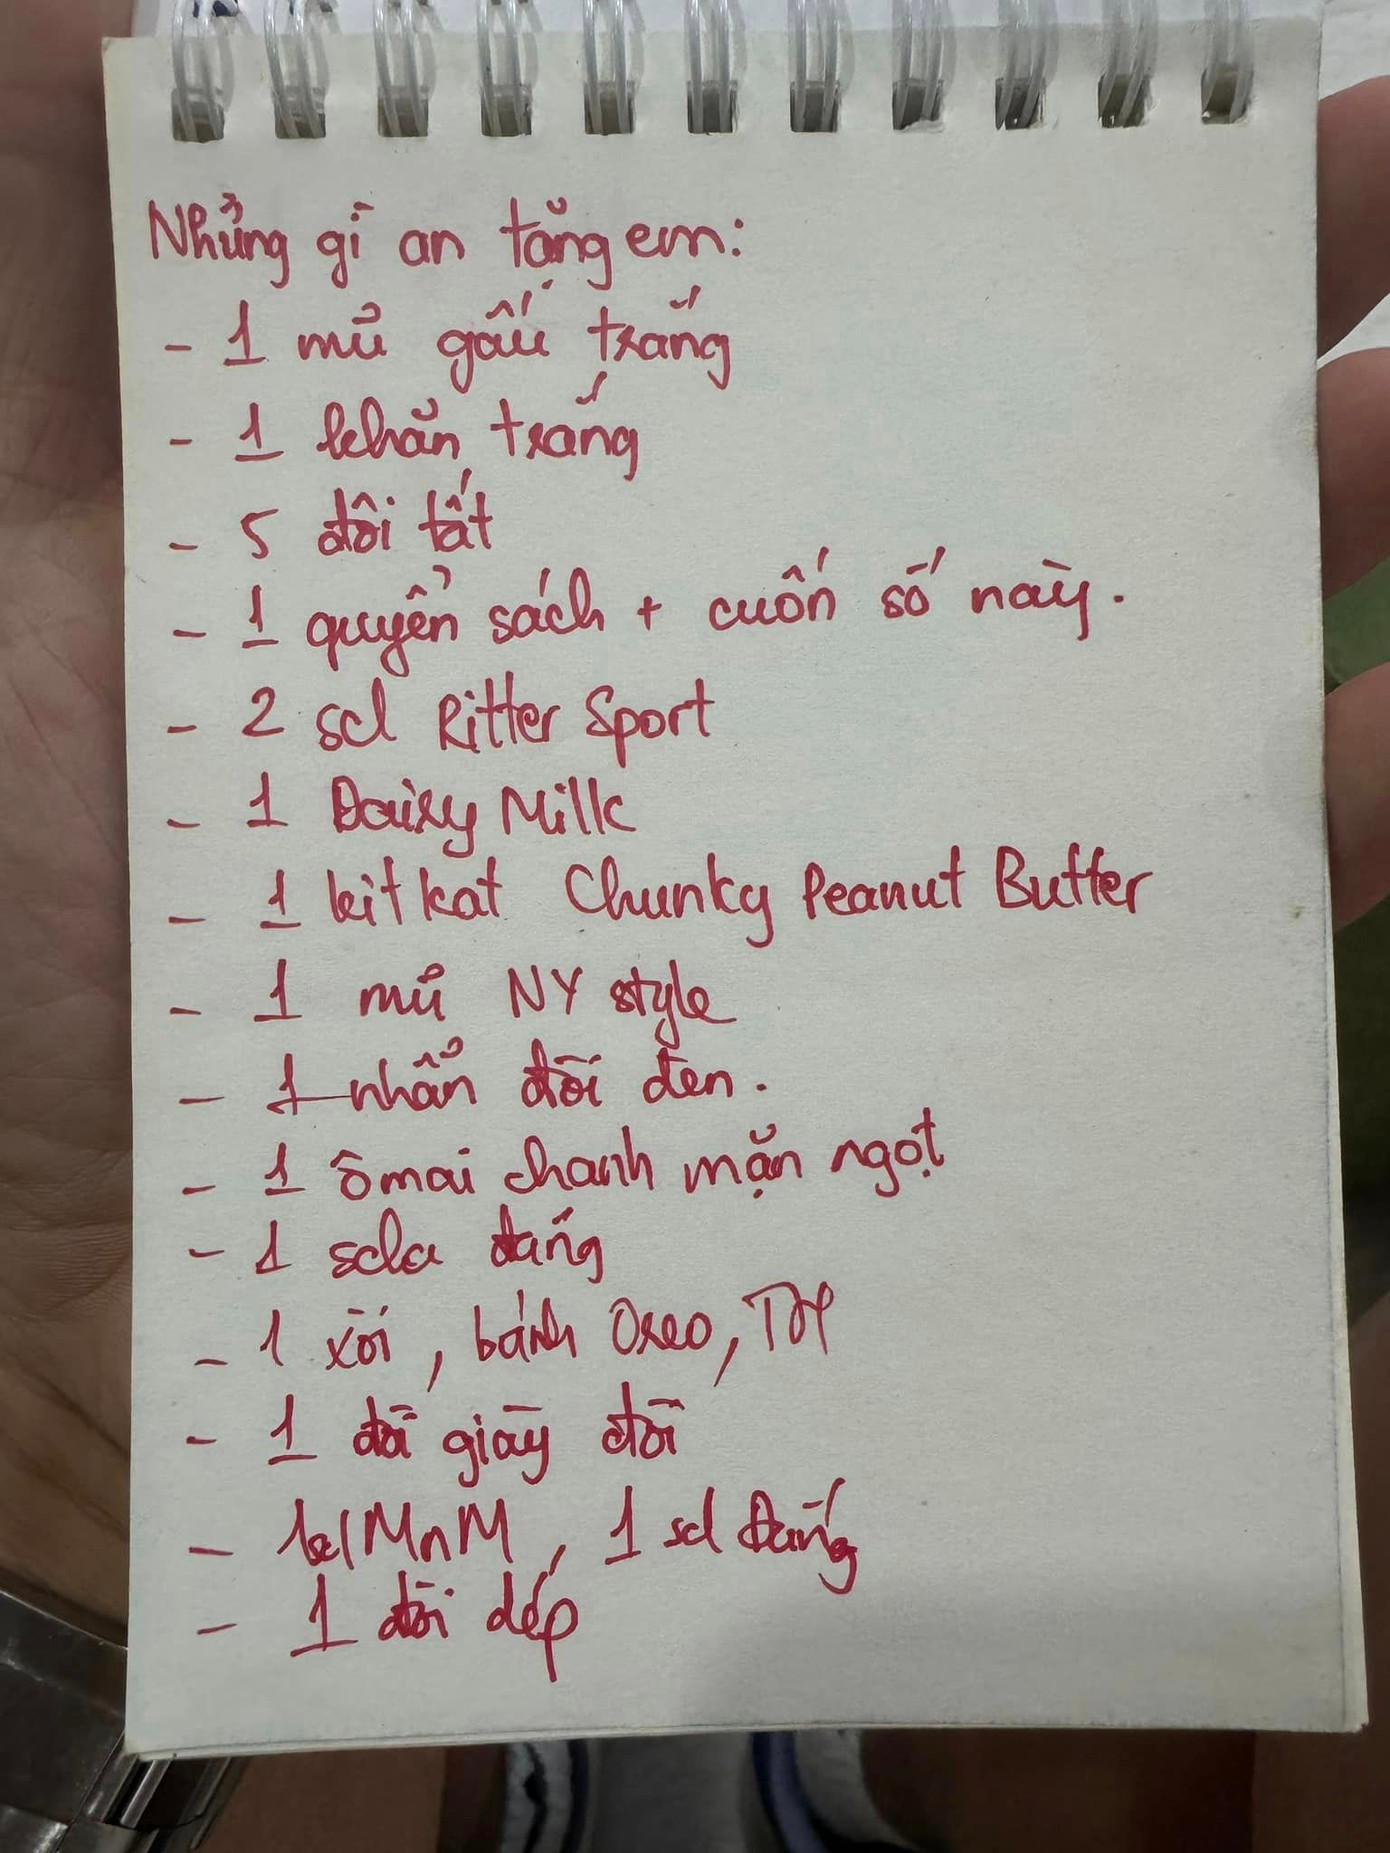 Những gì an tặng em:
- 1 mũ gấu trắng
- 1 khăn trắng
- 5 đôi tất
- 1 quyển sách + cuốn sổ này.
- 2 scl Ritter Sport
- 1 Dairy Milk
- 1 kit kat Chunky Peanut Butter
- 1 mũ NY style
- 1 nhẫn đôi đen.
- 1 ô mai chanh mặn ngọt
- 1 scla đắng
- 1 xôi, bánh Oreo,
- 1 đôi giày đôi
- 1 scl MnM, 1 scl Đắng
- 1 đôi dép